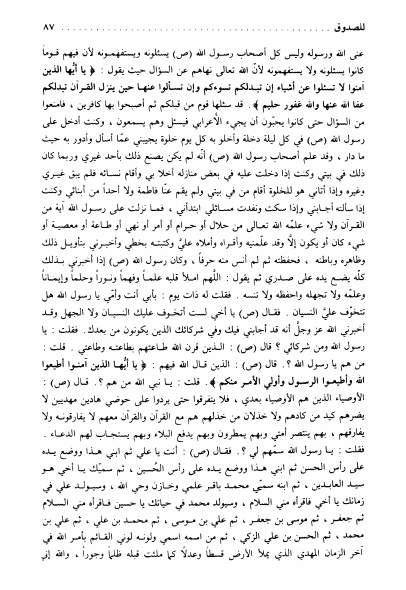 للصدوق ........................................ ٨٧
عنى الله ورسوله وليس كل أصحاب رسول الله (ص) يسئلونه ويستفهمونه لأن فيهم قوماً
كانوا يسئلونه ولا يستفهمونه لأنّ الله تعالى نهاهم عن السؤال حيث يقول : ﴿ يا أيُّها الذين
آمنوا لا تسئلوا عن أشياء إن تبدلكم تسوءكم وإن تسألوا عنها حين ينزل القرآن تبدلكم
عفا الله عنها والله غفور حليم ﴾ . قد سئلها قوم من قبلكم ثم أصبحوا بها كافرين ، فامنعوا
من السؤال حتى كانوا يحبّون أن يجيء الأعرابي فيسئل وهم يسمعون ، وكنت أدخل على
رسول الله (ص) في كل ليلة دخلة وأخلو به كل يوم خلوة يجيبني عمّا أسأل وأدور به حيث
ما دار ، وقد علم أصحاب رسول الله (ص) أنّه لم يكن يصنع ذلك بأحد غيري وربما كان
ذلك في بيتي وكنت إذا دخلت عليه في بعض منازله أخلا بي وأقام نسائه فلم يبق غيري
وغيره وإذا أتاني هو للخلوة أقام من في بيتي ولم يقم عنّا فاطمة ولا أحداً من أبنائي وكنت
إذا سألته أجابني وإذا سكت ونفدت مسائلي ابتدأني ، فما نزلت على رسول الله آية من
القرآن ولا شيء علمّه الله تعالى من حلال أو حرام أو أمر أو نهي أو طاعة أو معصية أو
شيء كان أو يكون إلّا وقد علّمنيه وأقرأه وأملاه عليّ وكتبته بخطي وأخبرني بتأويل ذلك
وظاهره وباطنه ، فحفظته ثم لم أنس منه حرفاً ، وكان رسول الله (ص) إذا أخبرني بذلك
كلّه يضع يده على صدري ثم يقول : اللّهم املأ قلبه علماً وفهماً ونوراً وحلماً وإيماناً
وعلّمه ولا تجهله واحفظه ولا ننسه . فقلت له ذات يوم : بأبي أنت وأمّي يا رسول الله هل
تتخوّف عليّ النسيان . فقال (ص) يا أخي لست أتخوف عليك النسيان ولا الجهل وقد
أخبرني الله عز وجلّ أنه قد أجابني فيك وفي شركائك الذين يكونون من بعدك. فقلت : يا
رسول الله ومن شركائي ؟ قال (ص) : الذين قرن الله طاعتهم بطاعته وطاعتي . قلت :
من هم يا رسول الله ؟. قال (ص) : الذين قال الله فيهم : ﴿ يا أيُّها الذين آمنوا أطيعوا
الله وأطيعوا الرسول وأولي الأمر منكم ﴾. قلت : يا نبي الله من هم ؟. قال (ص) :
الأوصياء الذين هم الأوصياء بعدي ، فلا يتفرقوا حتى يردوا على حوضي هادين مهديين لا
يضرهم كيد من كادهم ولا خذلان من خذلهم هم مع القرآن والقرآن معهم لا يفارقونه ولا
يفارقهم ، بهم ينتصر أمتي وبهم يمطرون وبهم يدفع البلاء وبهم يستجاب لهم الدعاء .
فقلت : يا رسول الله سمّهم لي . فقال (ص) : أنت يا علي ثم ابني هذا ووضع يده
على رأس الحسن ثم ابني هذا ووضع يده على رأس الحُسين ، ثم سميّك يا أخي هو
سيد العابدين ، ثم ابنه سميّي محمد باقر علمي وخازن وحي الله ، وسيولد علي في
زمانك يا أخي فاقرأه مني السلام ، وسيولد محمد في حياتك يا حسين فاقرأه مني السلام
ثم جعفر ، ثم موسى بن جعفر ، ثم علي بن موسى ، ثم محمد بن علي ، ثم علي بن
محمد ، ثم الحسن بن علي الزكي ، ثم من اسمه اسمي ولونه لوني القائم بأمر الله في
آخر الزمان المهدي الذي يملأ الأرض قسطاً وعدلًا كما ملئت قبله ظلماً وجوراً ، والله إني